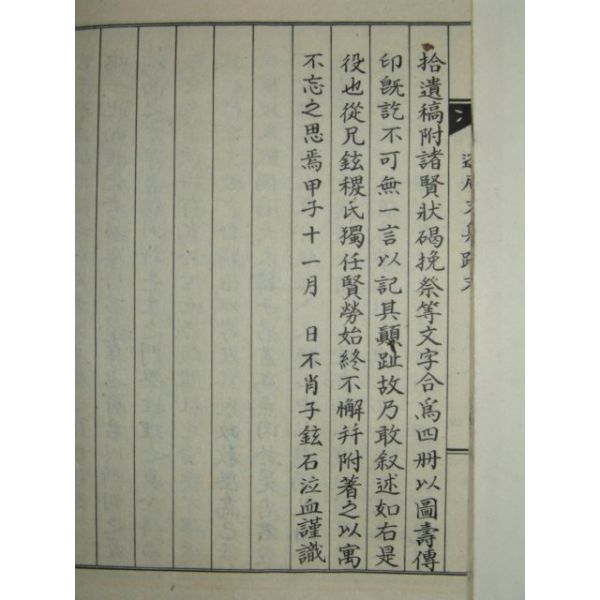 拾遺稿附諸賢狀碣挽祭等文字合爲四册以圖壽傳
印旣訖不可無一言以記其顚趾故乃敢叙述如右是
役也從兄鉉稷氏獨任賢勞始終不懈幷附著之以寓
不忘之思焉甲子十一月　日不肖子鉉石泣血謹識